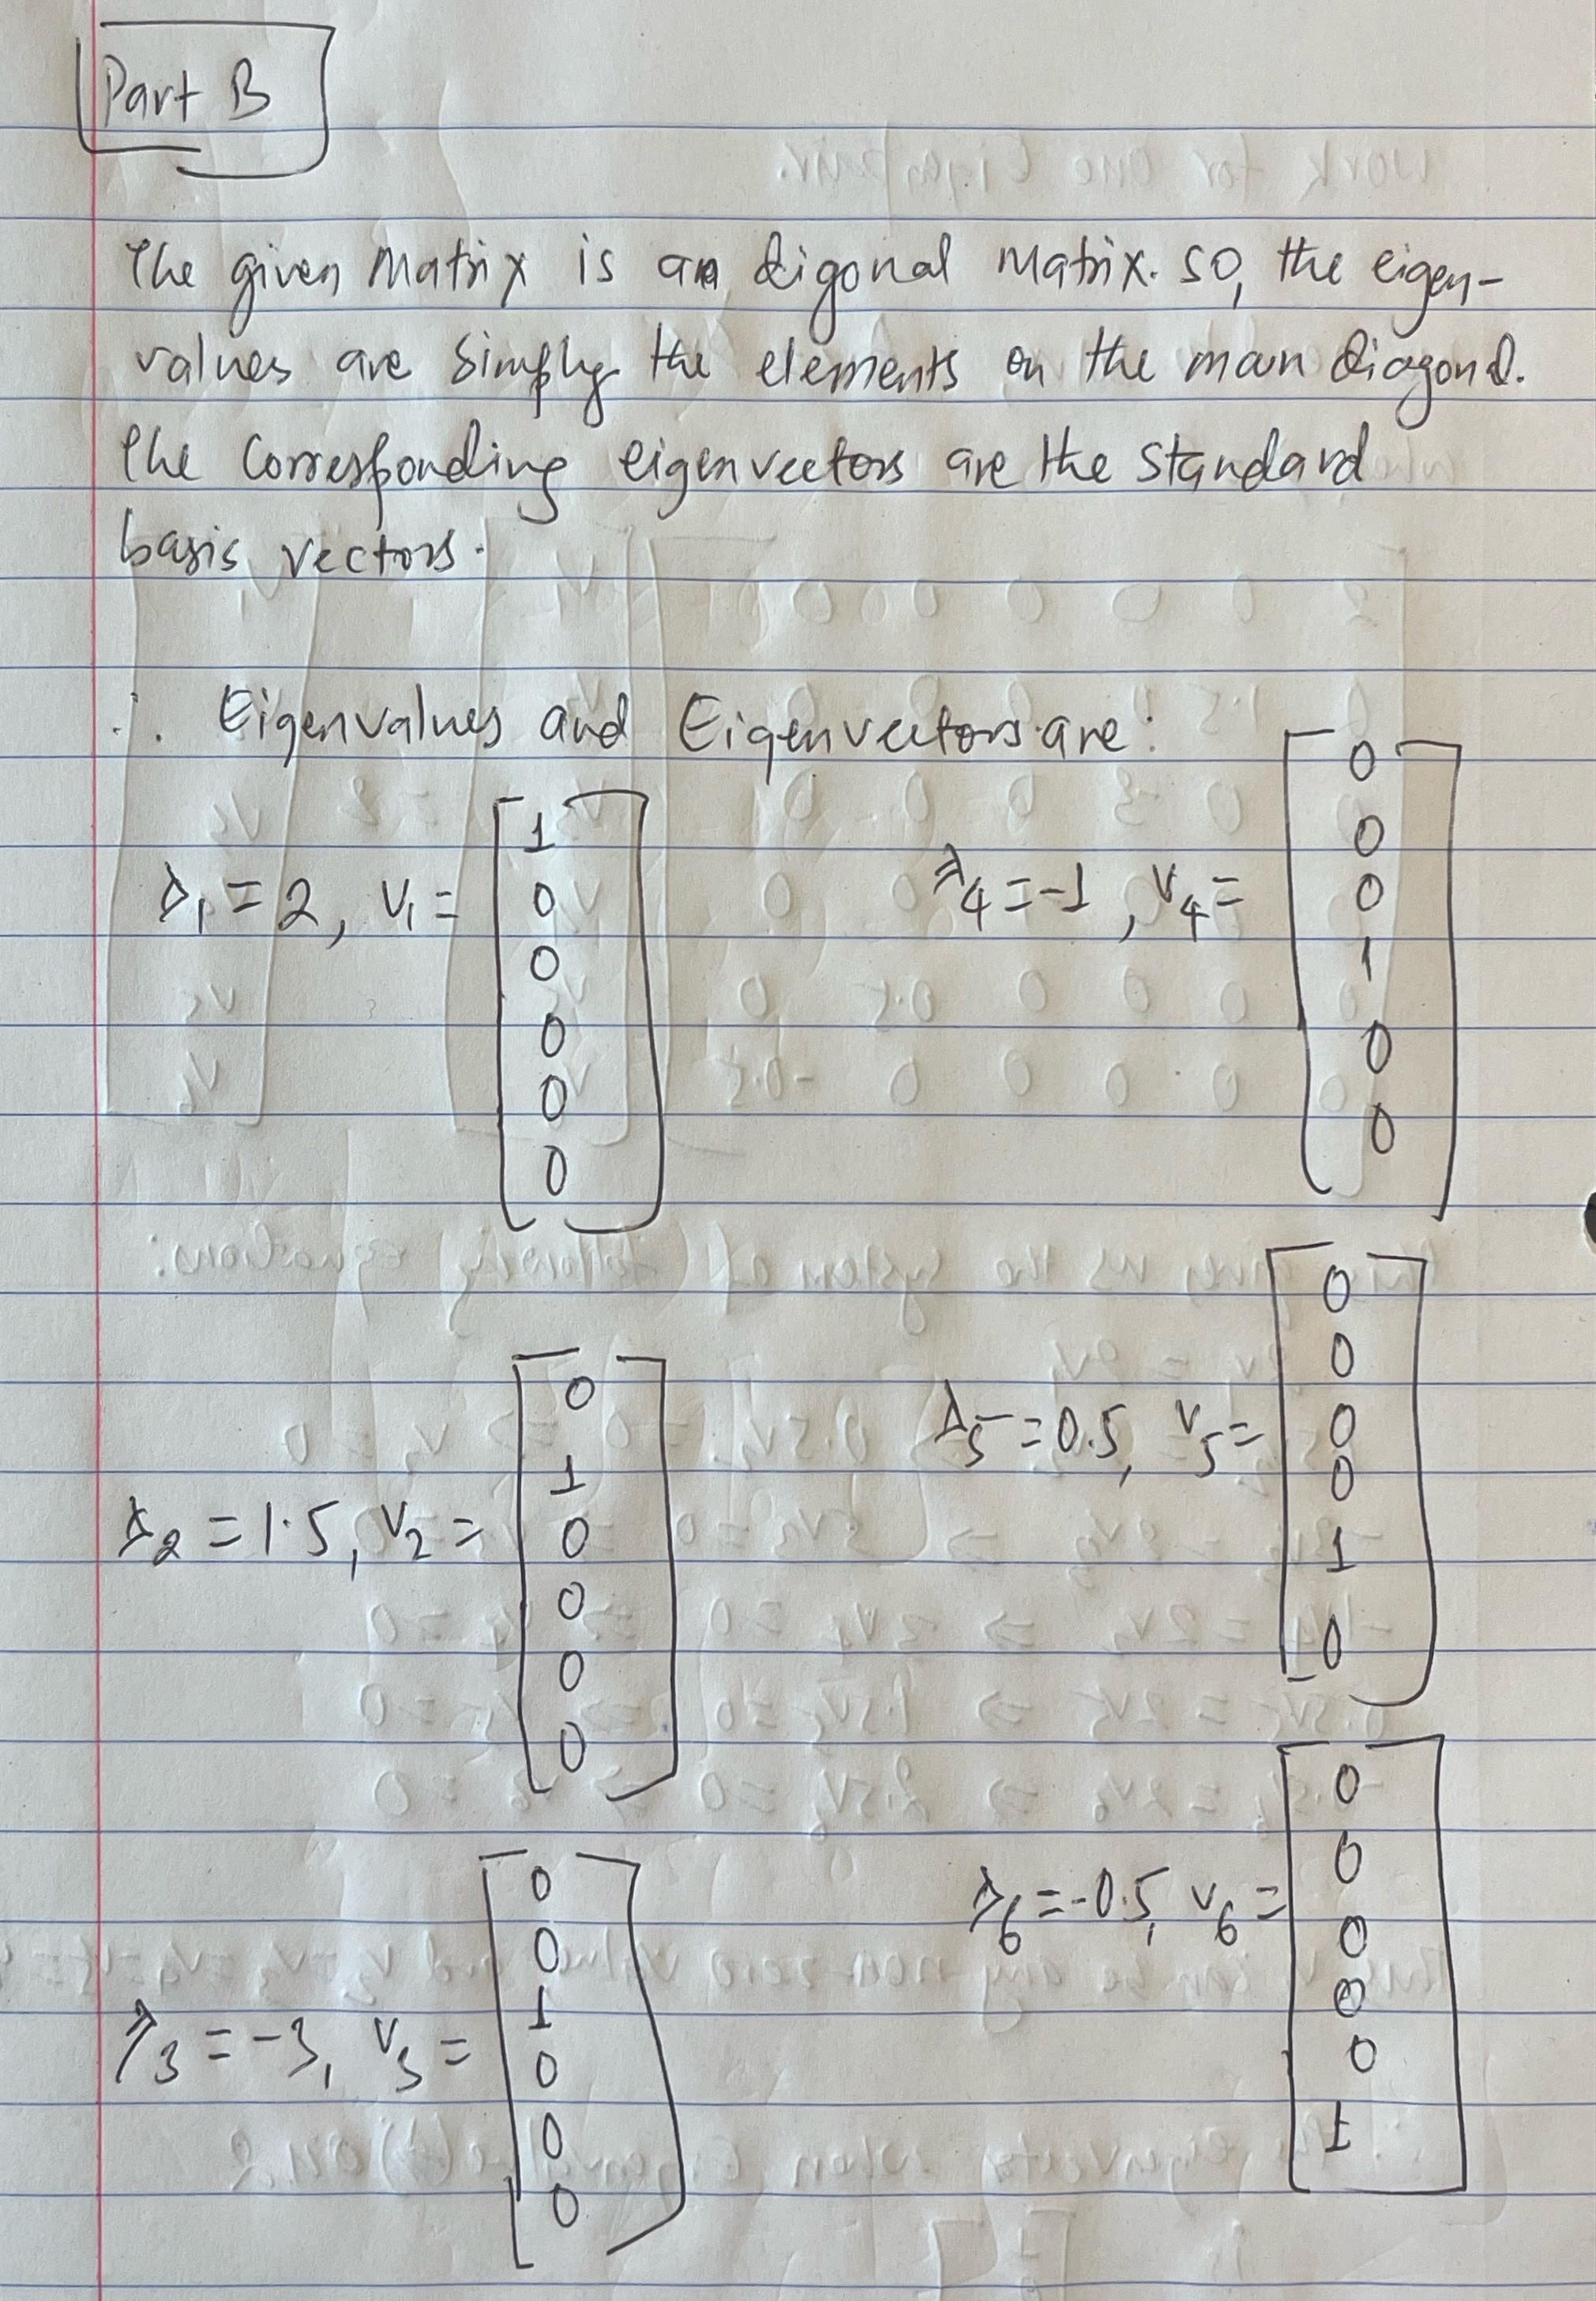 Part B
The given Matrix is an digonal matrix. So, the eigen-
values are simply the elements on the main diagonal.
The corresponding eigenvectors are the standard
basis vectors.
∴ Eigenvalues and Eigenvectors are:
λ₁ = 2, v₁ = [1 0 0 0 0 0]
λ₂ = 1.5, v₂ = [0 1 0 0 0 0]
λ₃ = -3, v₃ = [0 0 1 0 0 0]
λ₄ = -1, v₄ = [0 0 0 1 0 0]
λ₅ = 0.5, v₅ = [0 0 0 0 1 0]
λ₆ = -0.5, v₆ = [0 0 0 0 0 1]